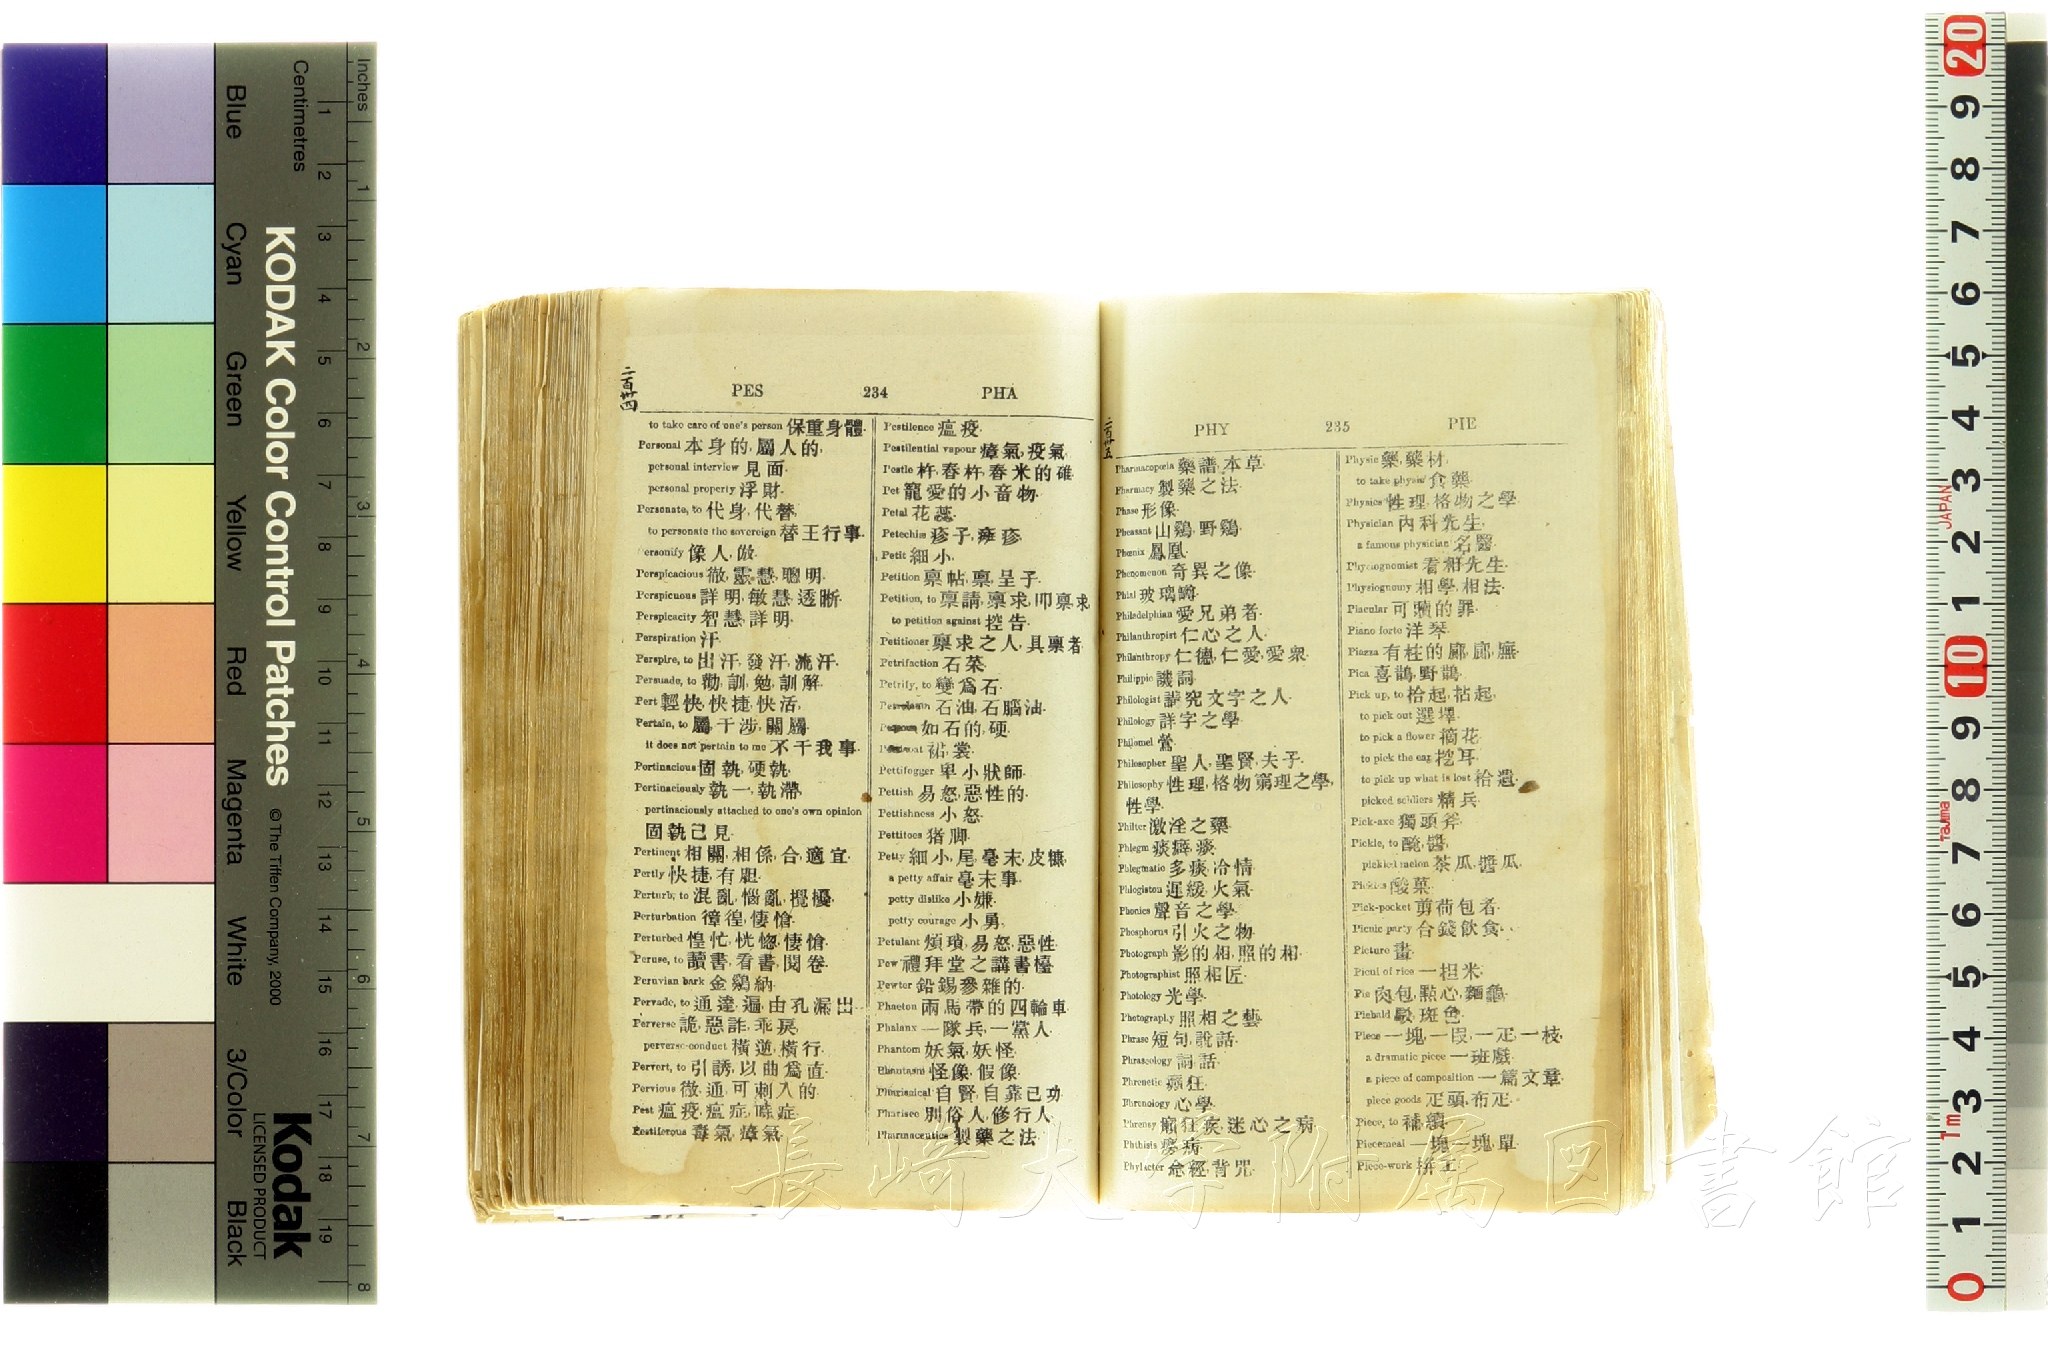 Inches
Centimetres
KODAK Color Control Patches
© The Tiffen Company, 2000
Kodak
LICENSED PRODUCT
Blue
Cyan
Green
Yellow
Red
Magenta
White
3/Color
Black
二百卅四
PES 234 PHA
to take care of one's person 保重身體.
Personal 本身的, 屬人的,
personal interview 見面.
personal property 浮財.
Personate, to 代身, 代替.
to personate the sovereign 替王行事.
ersonify 像人, 倣.
Perspicacious 徹, 靈慧, 聰明.
Perspicuous 詳明, 敏慧, 透晰.
Perspicacity 智慧, 詳明.
Perspiration 汗.
Perspire, to 出汗, 發汗, 流汗.
Persuade, to 勸, 訓勉, 訓解.
Pert 輕快, 快捷, 快活,
Pertain, to 屬, 干涉, 關屬.
it does not pertain to me 不干我事.
Pertinacious 固執, 硬執.
Pertinaciously 執一, 執滯.
pertinaciously attached to one's own opinion
固執己見.
Pertinent 相關, 相係, 合適宜.
Pertly 快捷, 有膽.
Perturb, to 混亂, 惱亂, 攪擾.
Perturbation 徨徨, 悽愴.
Perturbed 惶忙, 恍惚, 悽愴.
Peruse, to 讀書, 看書, 閱卷.
Peruvian bark 金雞納.
Pervade, to 通達, 遍, 由孔漏出.
Perverse 詭, 惡詐, 乖戾.
perverse conduct 橫逆, 橫行.
Pervert, to 引誘, 以曲爲直.
Pervious 徹, 通, 可刺入的.
Pest 瘟疫, 瘟症,
Pestiferous 毒氣, 瘴氣.
Pestilence 瘟疫.
Pestilential vapour 瘴氣, 疫氣.
Pestle 杵, 舂杵, 舂米的碓.
Pet 寵愛的小畜物.
Petal 花蕊.
Petechiæ 疹子, 瘫疹.
Petit 細小.
Petition 禀帖, 禀, 呈子.
Petition, to 禀請, 禀求, 叩禀求.
to petition against 控告.
Petitioner 禀求之人, 具禀者.
Petrifaction 石菜.
Petrify, to 變爲石.
石油, 石腦油.
如石的, 硬.
裙, 裳.
Pettifogger 卑小狀師.
Pettish 易怒, 惡性的.
Pettishness 小怒.
Pettitoes 猪脚.
Petty 細小, 尾, 毫末, 皮糠.
a petty affair 毫末事.
petty dislike 小嫌.
petty courage 小勇.
Petulant 煩瑣, 易怒, 惡性.
Pew 禮拜堂之講書檯.
Pewter 鉛錫參雜的.
Phaeton 兩馬帶的四輪車.
Phalanx 一隊兵, 一黨人.
Phantom 妖氣, 妖怪.
Phantasm 怪像, 假像.
Pharisaical 自賢, 自靠己功.
Pharisee 別俗人, 修行人.
Pharmaceutics 製藥之法.
二百卅五
PHY 235 PIE
Pharmacopœia 藥譜, 本草.
Pharmacy 製藥之法.
Phase 形像.
Pheasant 山鷄, 野鷄.
Phœnix 鳳凰.
Phenomenon 奇異之像.
Phial 玻璃罇.
Philadelphian 愛兄弟者.
Philanthropist 仁心之人.
Philanthropy 仁德, 仁愛, 愛衆.
Philippic 譏詞.
Philologist 講究文字之人.
Philology 詳字之學.
Philomel 鶯.
Philosopher 聖人, 聖賢, 夫子.
Philosophy 性理, 格物窮理之學,
性學.
Philter 激淫之藥.
Phlegm 痰癖, 痰.
Phlegmatic 多痰, 冷情.
Phlogiston 遲緩, 火氣.
Phonics 聲音之學.
Phosphorus 引火之物.
Photograph 影的相, 照的相.
Photographist 照相匠.
Photology 光學.
Photography 照相之藝.
Phrase 短句, 說話.
Phraseology 詞話.
Phrenetic 癲狂.
Phrenology 心學.
Phrensy 癲狂疾, 迷心之病.
Phthisis 癆病.
Phylacter 念經, 背咒.
Physic 藥, 藥材,
to take physic 食藥.
Physics 性理, 格物之學.
Physician 內科先生,
a famous physician 名醫.
Physiognomist 看相先生.
Physiognomy 相學, 相法.
Piacular 可贖的罪.
Piano forte 洋琴.
Piazza 有柱的廊, 廊, 廡.
Pica 喜鵲, 野鵲.
Pick up, to 拾起, 拈起,
to pick out 選擇.
to pick a flower 摘花.
to pick the ear 挖耳.
to pick up what is lost 拾遺.
picked soldiers 精兵.
Pick-axe 獨頭斧.
Pickle, to 醃, 醬.
pickled melon 茶瓜, 醬瓜.
Pickles 酸菓.
Pick-pocket 剪荷包者.
Picnic party 合錢飲食.
Picture 畫.
Picul of rice 一担米.
Pie 肉包, 點心, 麵龜.
Piebald 駁, 斑色.
Piece 一塊, 一段, 一疋, 一枝,
a dramatic piece 一班戲.
a piece of composition 一篇文章.
piece goods 疋頭, 布疋.
Piece, to 補, 續.
Piecemeal 一塊一塊, 單.
Piece-work 件工.
長崎大学附属図書館
JAPAN
Tajima
1m